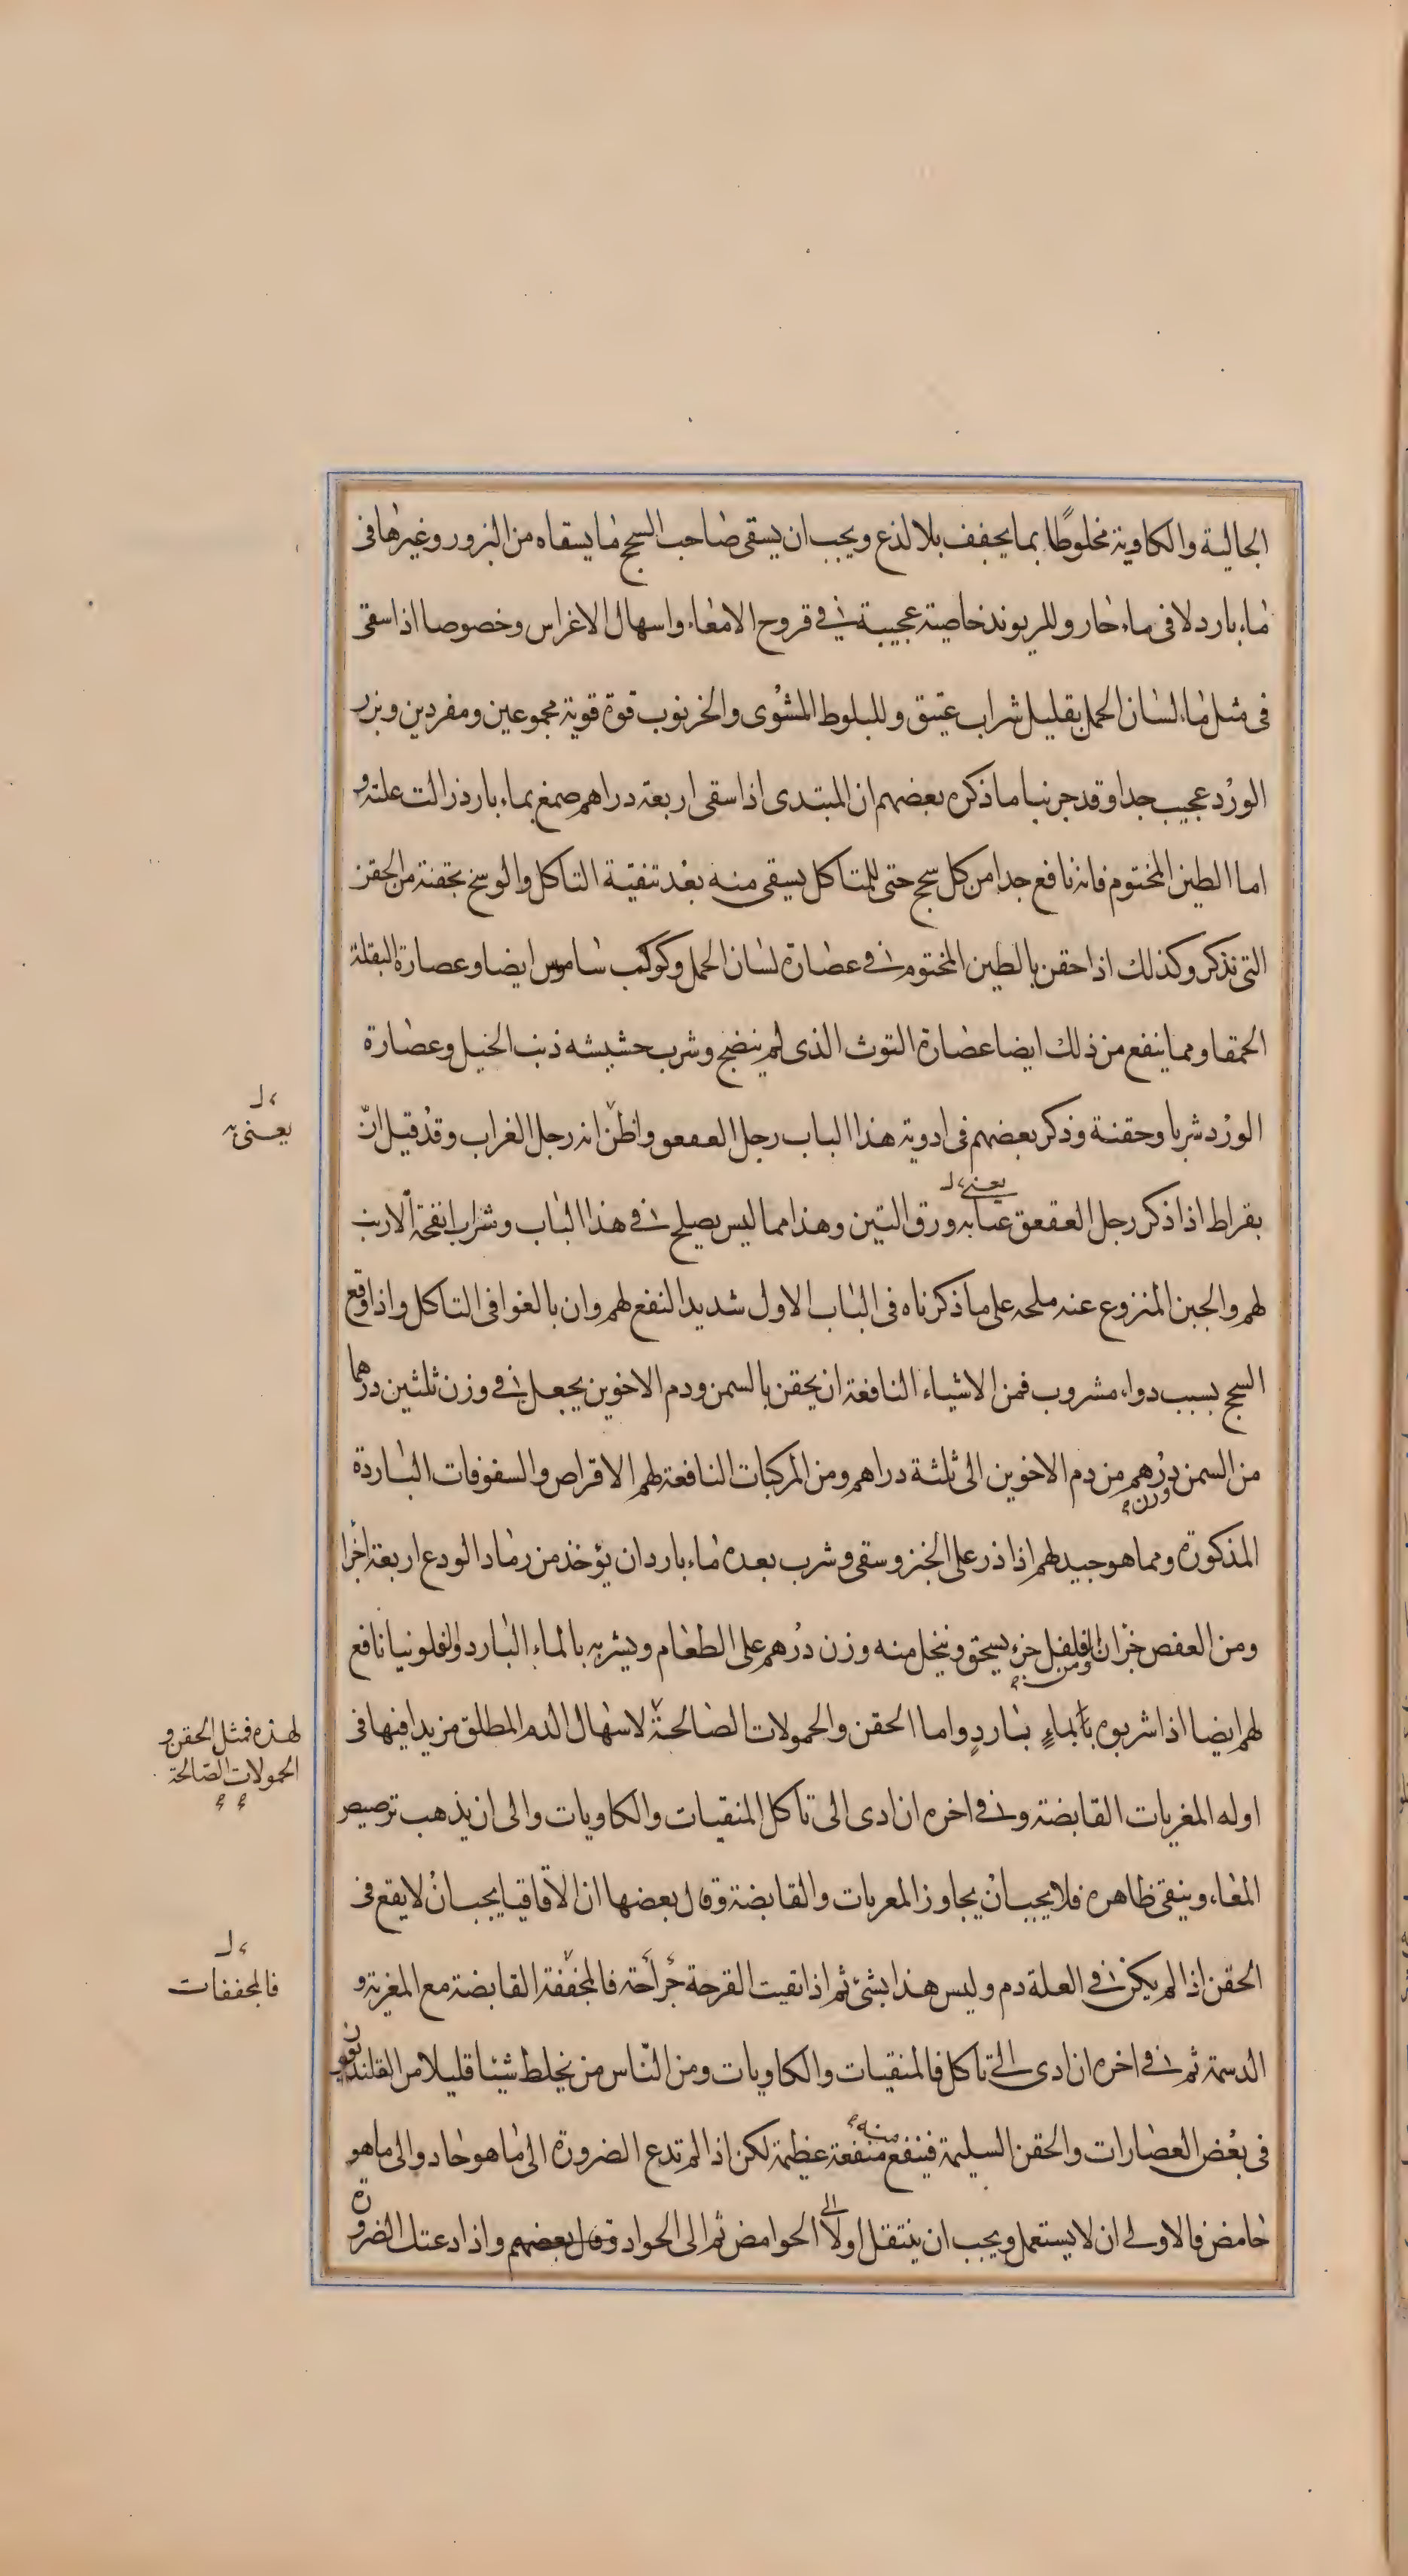 الجالية والكاوية مخلوطًا بما يجفف بلا لذع ويجب ان يسقى صاحب السحج ما يسقاه من البزور وغيرها فى
ماء بارد لا فى ماء حار وللريوند خاصية عجيبة فى قروح الامعاء واسهال الاغراس وخصوصا اذا سقى
فى مثل ماء لسان الحمل بقليل شراب عتيق وللبلوط المشوى والخرنوب قوة قوية مجموعين ومفردين وبزر
الورد عجيب جدا وقد جربنا ما ذكره بعضهم ان المبتدى اذا سقى اربعة دراهم صمغ بماء بارد زالت علته و
اما الطين المختوم فانه نافع جدا من كل سحج حتى للمتاكل يسقى منه بعد تنقية التاكل والوسخ بحقنة من الحقن
التى نذكر وكذلك اذا حقن بالطين المختوم فى عصارة لسان الحمل وكوكب ساموس ايضا وعصارة البقلة
الحمقا ومما ينفع من ذلك ايضا عصارة التوث الذى لم ينضج وشرب حشيشه ذنب الخيل وعصارة
الورد شربا وحقنة وذكر بعضهم فى ادوية هذا الباب رجل العقعق واظنّ انه رجل الغراب وقد قيل انّ
يعنى به
بقراط اذا ذكر رجل العقعق عنا به ورق التين وهذا مما ليس يصلح فى هذا الباب وشراب انفحة الارنب
يعنى
لهم والجبن المنزوع عنه ملحه على ما ذكرناه فى الباب الاول شديد النفع لهم وان بالغوا فى التاكل واذا وقع
السحج بسبب دواء مشروب فمن الاشياء النافعة ان يحقن بالسمن ودم الاخوين يجعل فى وزن ثلثين درهما
من السمن درهم من دم الاخوين الى ثلثة دراهم ومن المركبات النافعة لهم الاقراص والسفوفات الباردة
وزن
المذكورة ومما هو جيد لهم اذا ذر على الخبز وسقى وشرب بعده ماء بارد ان يؤخذ من رماد الودع اربعة اجزا
ومن العفص جزان الفلفل جزء يسحق وينخل منه وزن درهم على الطعام ويشربه بالماء البارد والفلونيا نافع
ومن
لهم ايضا اذا شربوه بالماءٍ باردٍ واما الحقن والحمولات الصالحة لاسهال الدم المطلق مزيدا فيها فى
لهذه فمثل الحقن و
الحمولات الصالحة
اوله المغريات القابضة وفى اخره ان ادى الى تاكل المنقيات والكاويات والى ان يذهب ترصيص
المعاء وينقى ظاهره فلا يجب انْ يجاوز المغريات والقابضة وقال بعضها ان الاقاقيا يجب انْ لا يقع فى
الحقن اذا لم يكن فى العلة دم وليس هذا بشئ ثم اذا نقيت القرحة جراحة فالمخففة القابضة مع المغرية و
فالمجففات
الدسمة ثم فى اخره ان ادى الى تاكل فالمنقيات والكاويات ومن النّاس من يخلط شيئا قليلا من القلنديقون
فى بعض العصارات والحقن السليمة فينفع منفعة عظيمة لكن اذا لم تدع الضرورة الى ما هو حاد والى ما هو
منه
حامض فالاولى ان لا يستعمل ويجب ان ينتقل اولا الى الحوامض ثم الى الحواد وقال بعضهم واذا دعتك الضرورة